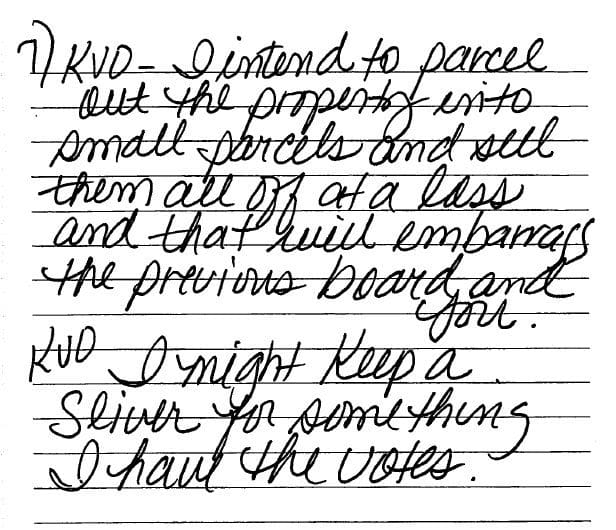 7) KVD - I intend to parcel
out the property into
small parcels and sell
them all off at a loss
and that will embarrass
the previous board and
you.
KVD I might keep a
Sliver for something
I have the votes.